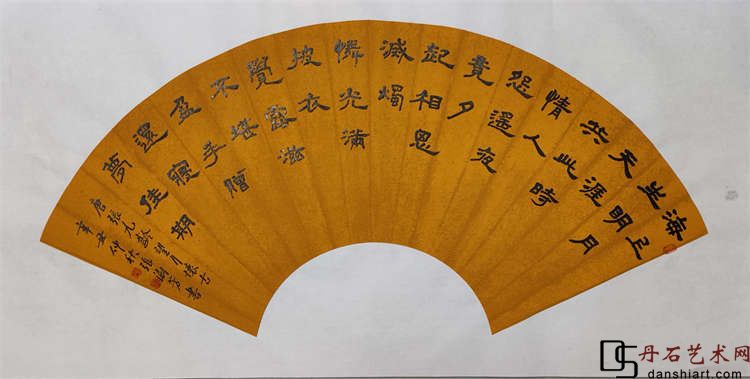 海上
生明月
天涯
共此時
情人
怨遥夜
竟夕
起相思
滅燭
憐光滿
披衣
覺露滋
不堪
盈手贈
還寢
夢佳期
唐張九齡望月懷古
辛丑仲秋張 芳書
丹石艺术网
danshiart.com